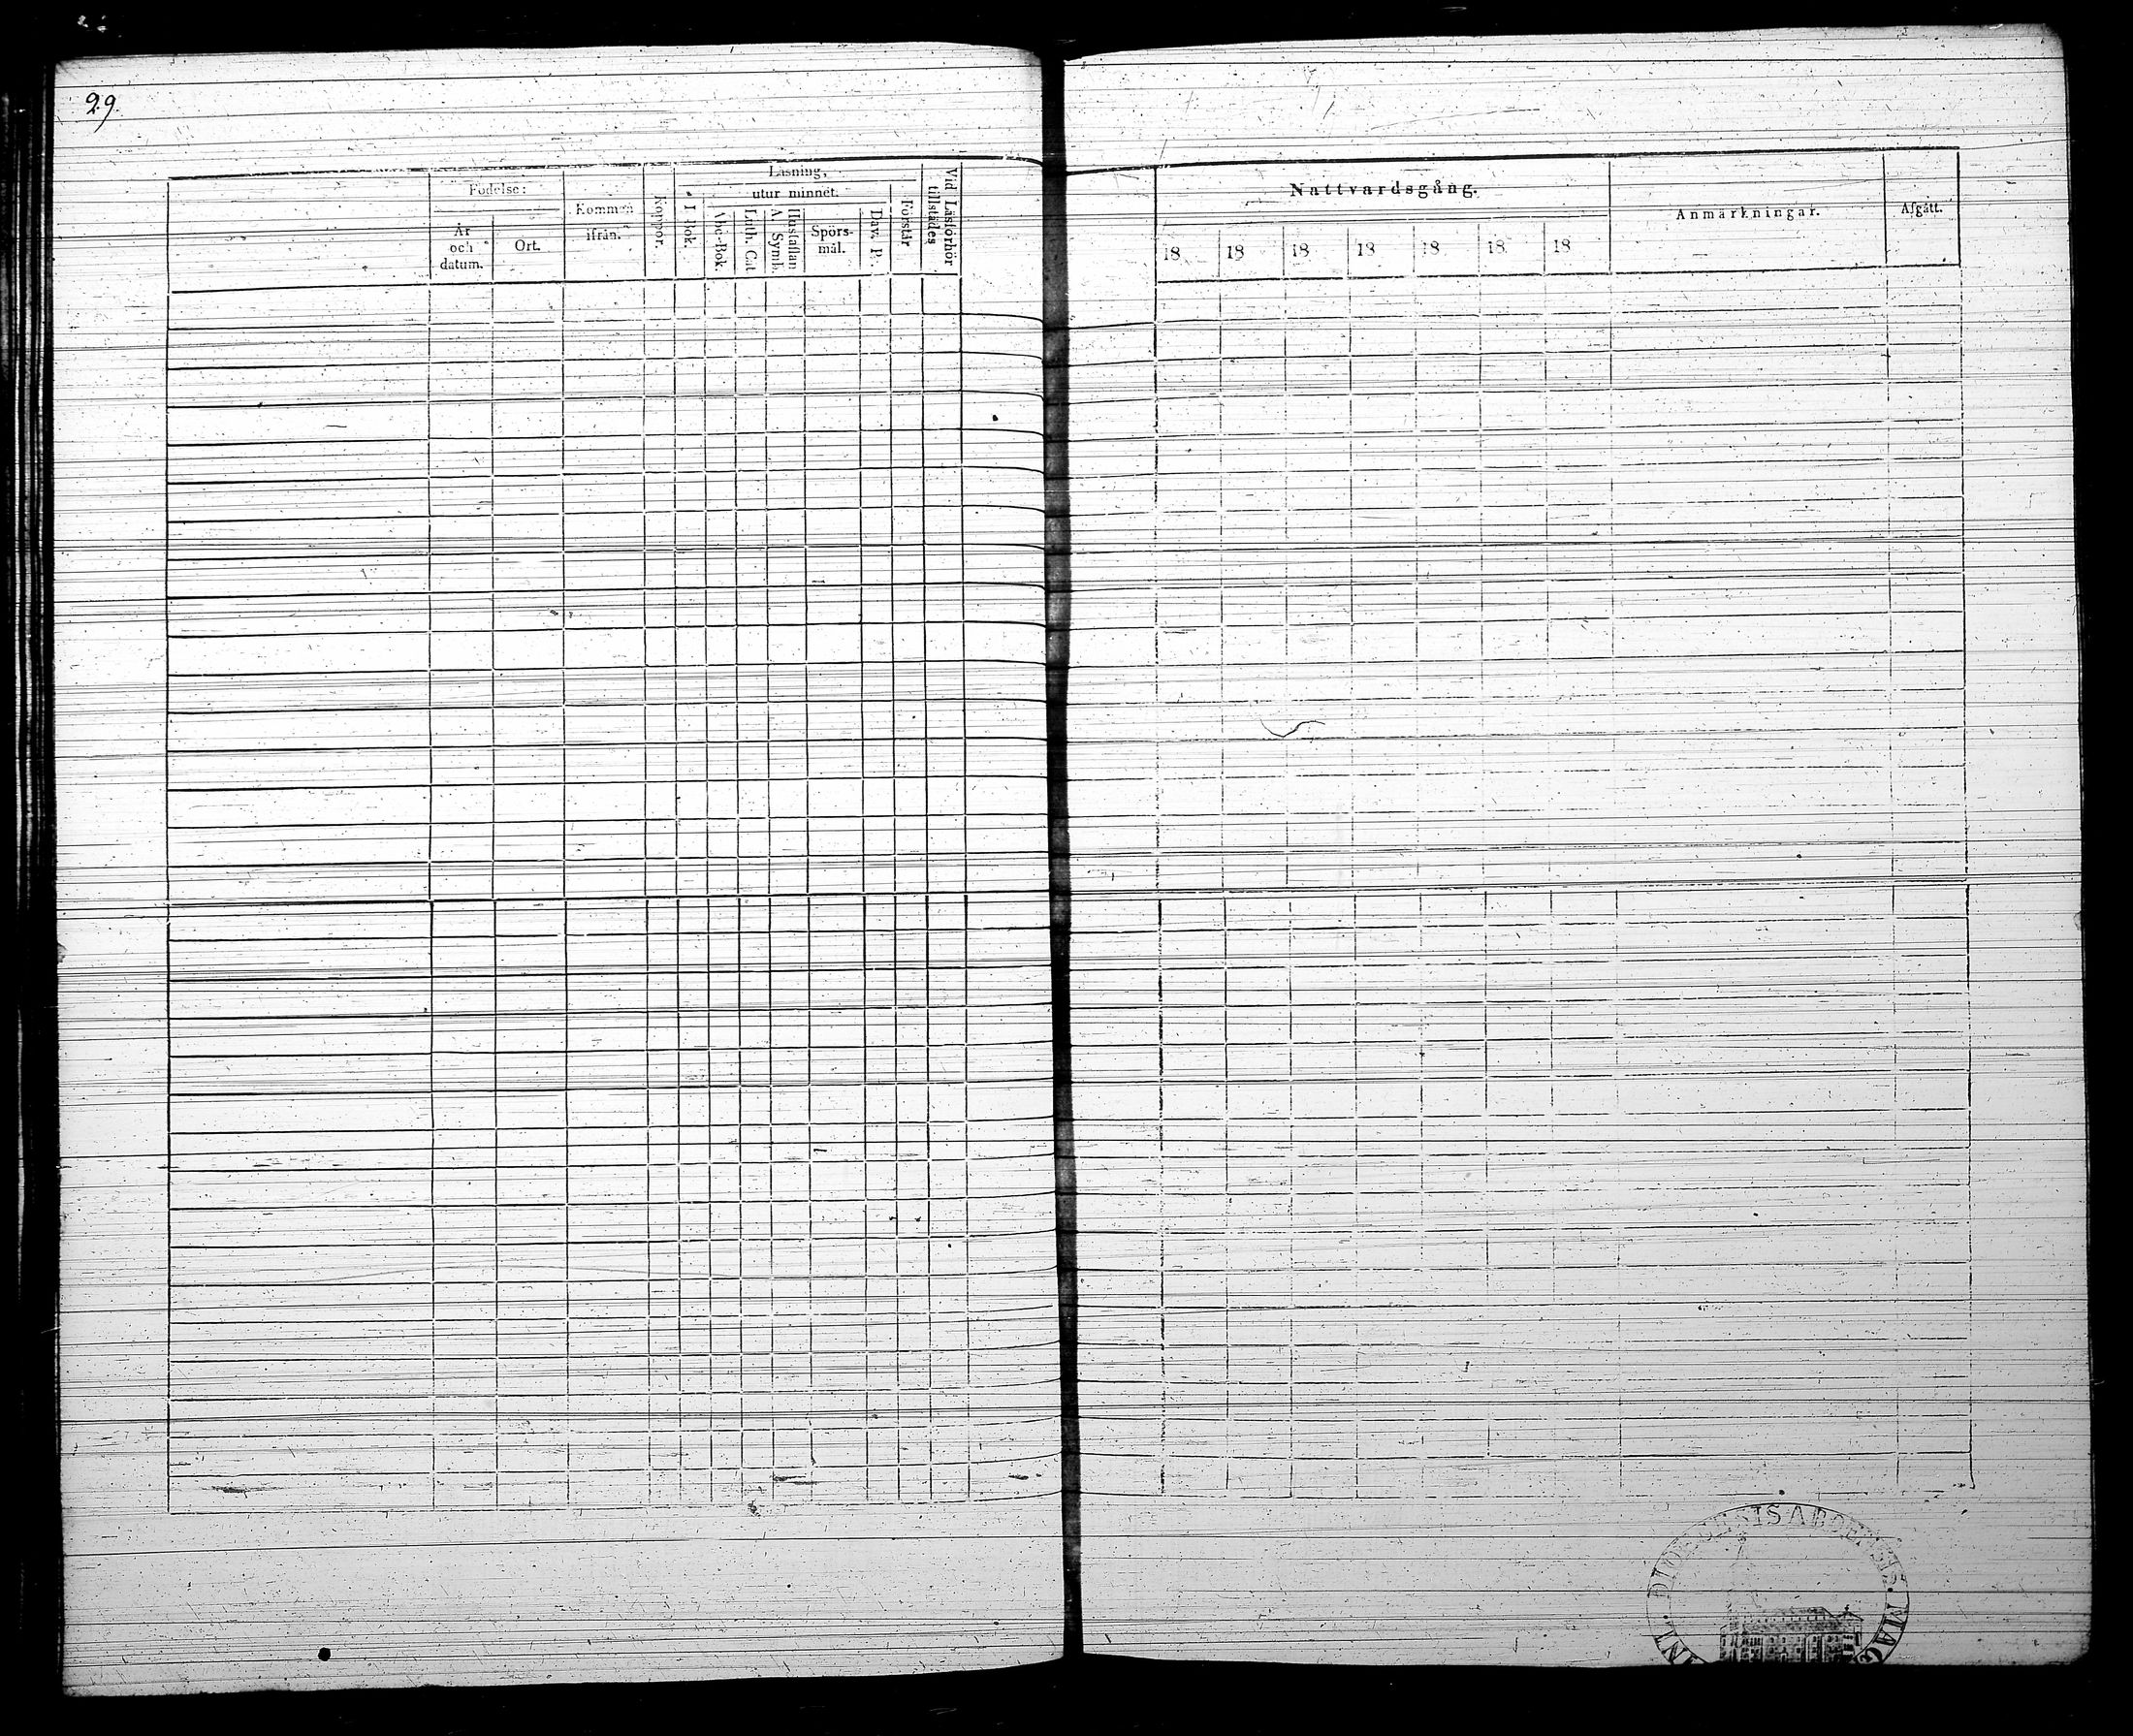 29.
Födelse:
År
och
datum.
Ort.
Kommen
ifrån.
Koppor.
Läsning,
I Bok.
utur minnet.
Abc-Bok.
Luth. Cat
Hustaflan
A. Symb.
Spörs-
mål.
Dav. P.
Förstår
Vid Läsförhör
tillstädes
Nattvardsgång.
18 18 18 18 18 18 18
Anmärkningar.
Afgått.
DIOECESIS ABOENSIS. MAG